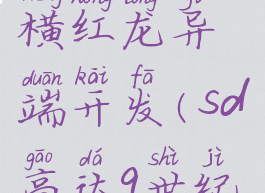 横红龙异
duān kāi fā
端开发(sd
gāo dá shì jì
高达9世纪